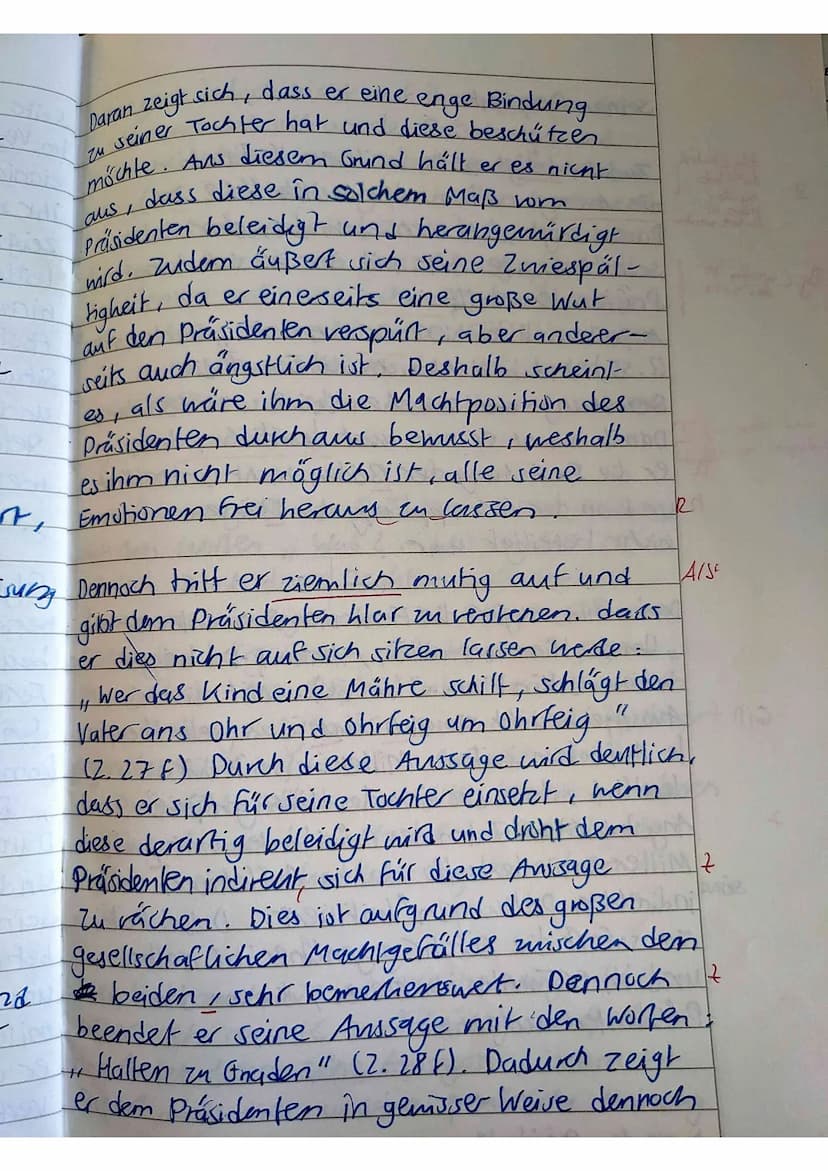 Daran zeigt sich, dass er eine enge Bindung
zu seiner Tochter hat und diese beschützen
möchte. Aus diesem Grund hält er es nicht
aus, dass diese in solchem Maß vom
Präsidenten beleidigt und herangewürdigt
wird. Zudem äußert sich seine Zwiespäl-
tigkeit, da er einerseits eine große Wut
auf den Präsidenten verspürt, aber anderer-
seits auch ängstlich ist. Deshalb scheint
es, als wäre ihm die Machtposition des
Präsidenten durchaus bewusst, weshalb
es ihm nicht möglich ist, alle seine
Emotionen frei heraus zu lassen. R
Dennoch tritt er ziemlich mutig auf und
gibt dem Präsidenten klar zu verstehen, dass
er dies nicht auf sich sitzen lassen werde:
„Wer das Kind eine Mähre schilt, schlägt den
Vater ans Ohr und Ohrfeig um Ohrfeig"
(Z. 27 f) Durch diese Aussage wird deutlich,
dass er sich für seine Tochter einsetzt, wenn
diese derartig beleidigt wird und droht dem
Präsidenten indirekt, sich für diese Aussage Z
zu rächen. Dies ist aufgrund des großen
gesellschaflichen Machtgefälles zwischen dem
beiden, sehr bemerkenswert. Dennoch Z
beendet er seine Aussage mit den Worten:
„Halten zu Gnaden" (Z. 28 f). Dadurch zeigt
er dem Präsidenten in gewisser Weise dennoch